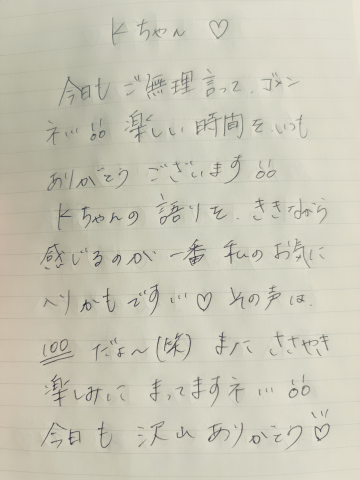 Kちゃん ♡
今日も ご無理言って、ゴメン
ネ… 楽しい時間を、いつも
ありがとう ございます
Kちゃんの 語りを、ききながら
感じるのが 一番 私のお気に
入りかもです…♡ その声は、
100 だよ〜(笑) また ささやき
楽しみに まってますネ…
今日も 沢山 ありがとう♡